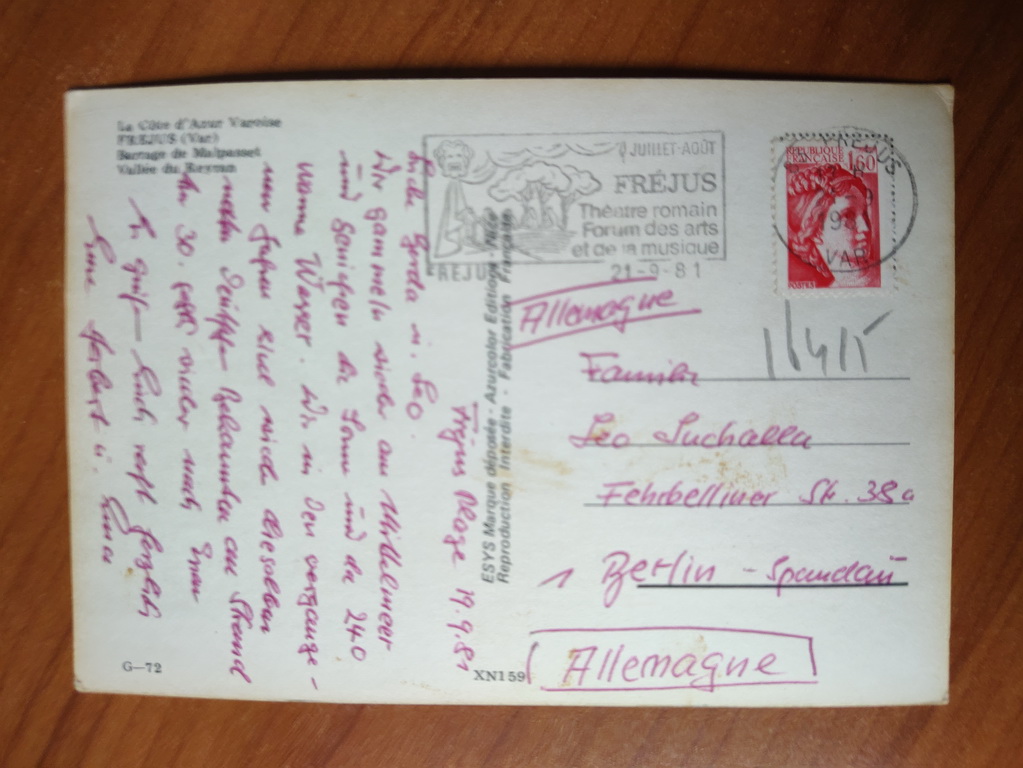 La Côte d'Azur Varoise
FRÉJUS (Var)
Barrage de Malpasset
Vallée du Reyran
Fréjus Plage 19.9.81
Liebe Gerda u. Leo.
Wir gammeln wieder am Mittelmeer
und genießen die Sonne und das 24°
warme Wasser. Wir in den vergange-
nen Jahren sind wieder dieselben
netten Leute am Strand
Am 30. wieder nach
Es grüßen Euch recht herzlich
Eure Herbert u.
G-72
ESYS Marque déposée - Azurcolor Editions - Nice
Reproduction Interdite - Fabrication Française
XN159
JUILLET-AOÛT
FRÉJUS
Théâtre romain
Forum des arts
et de la musique
FREJUS
21-9-81
REPUBLIQUE
FRANÇAISE
1,60
POSTES
VAR
16415
Allemagne
Familie
Leo Suchalla
Fehrbelliner Str. 38a
1 Berlin - Spandau
Allemagne